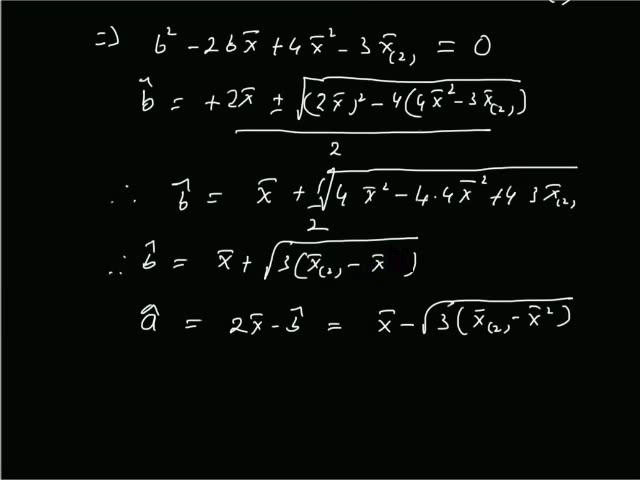 ⇒ b² - 2bx̄ + 4x̄² - 3x̄₍₂₎ = 0
b̂ = +2x̄ ± √((2x̄)² - 4(4x̄² - 3x̄₍₂₎)) / 2
∴ b̂ = x̄ + 1/2 √(4x̄² - 4·4x̄² + 4 3x̄₍₂₎
∴ b̂ = x̄ + √(3(x̄₍₂₎ - x̄ )
â = 2x̄ - b̂ = x̄ - √(3(x̄₍₂₎ - x̄²)